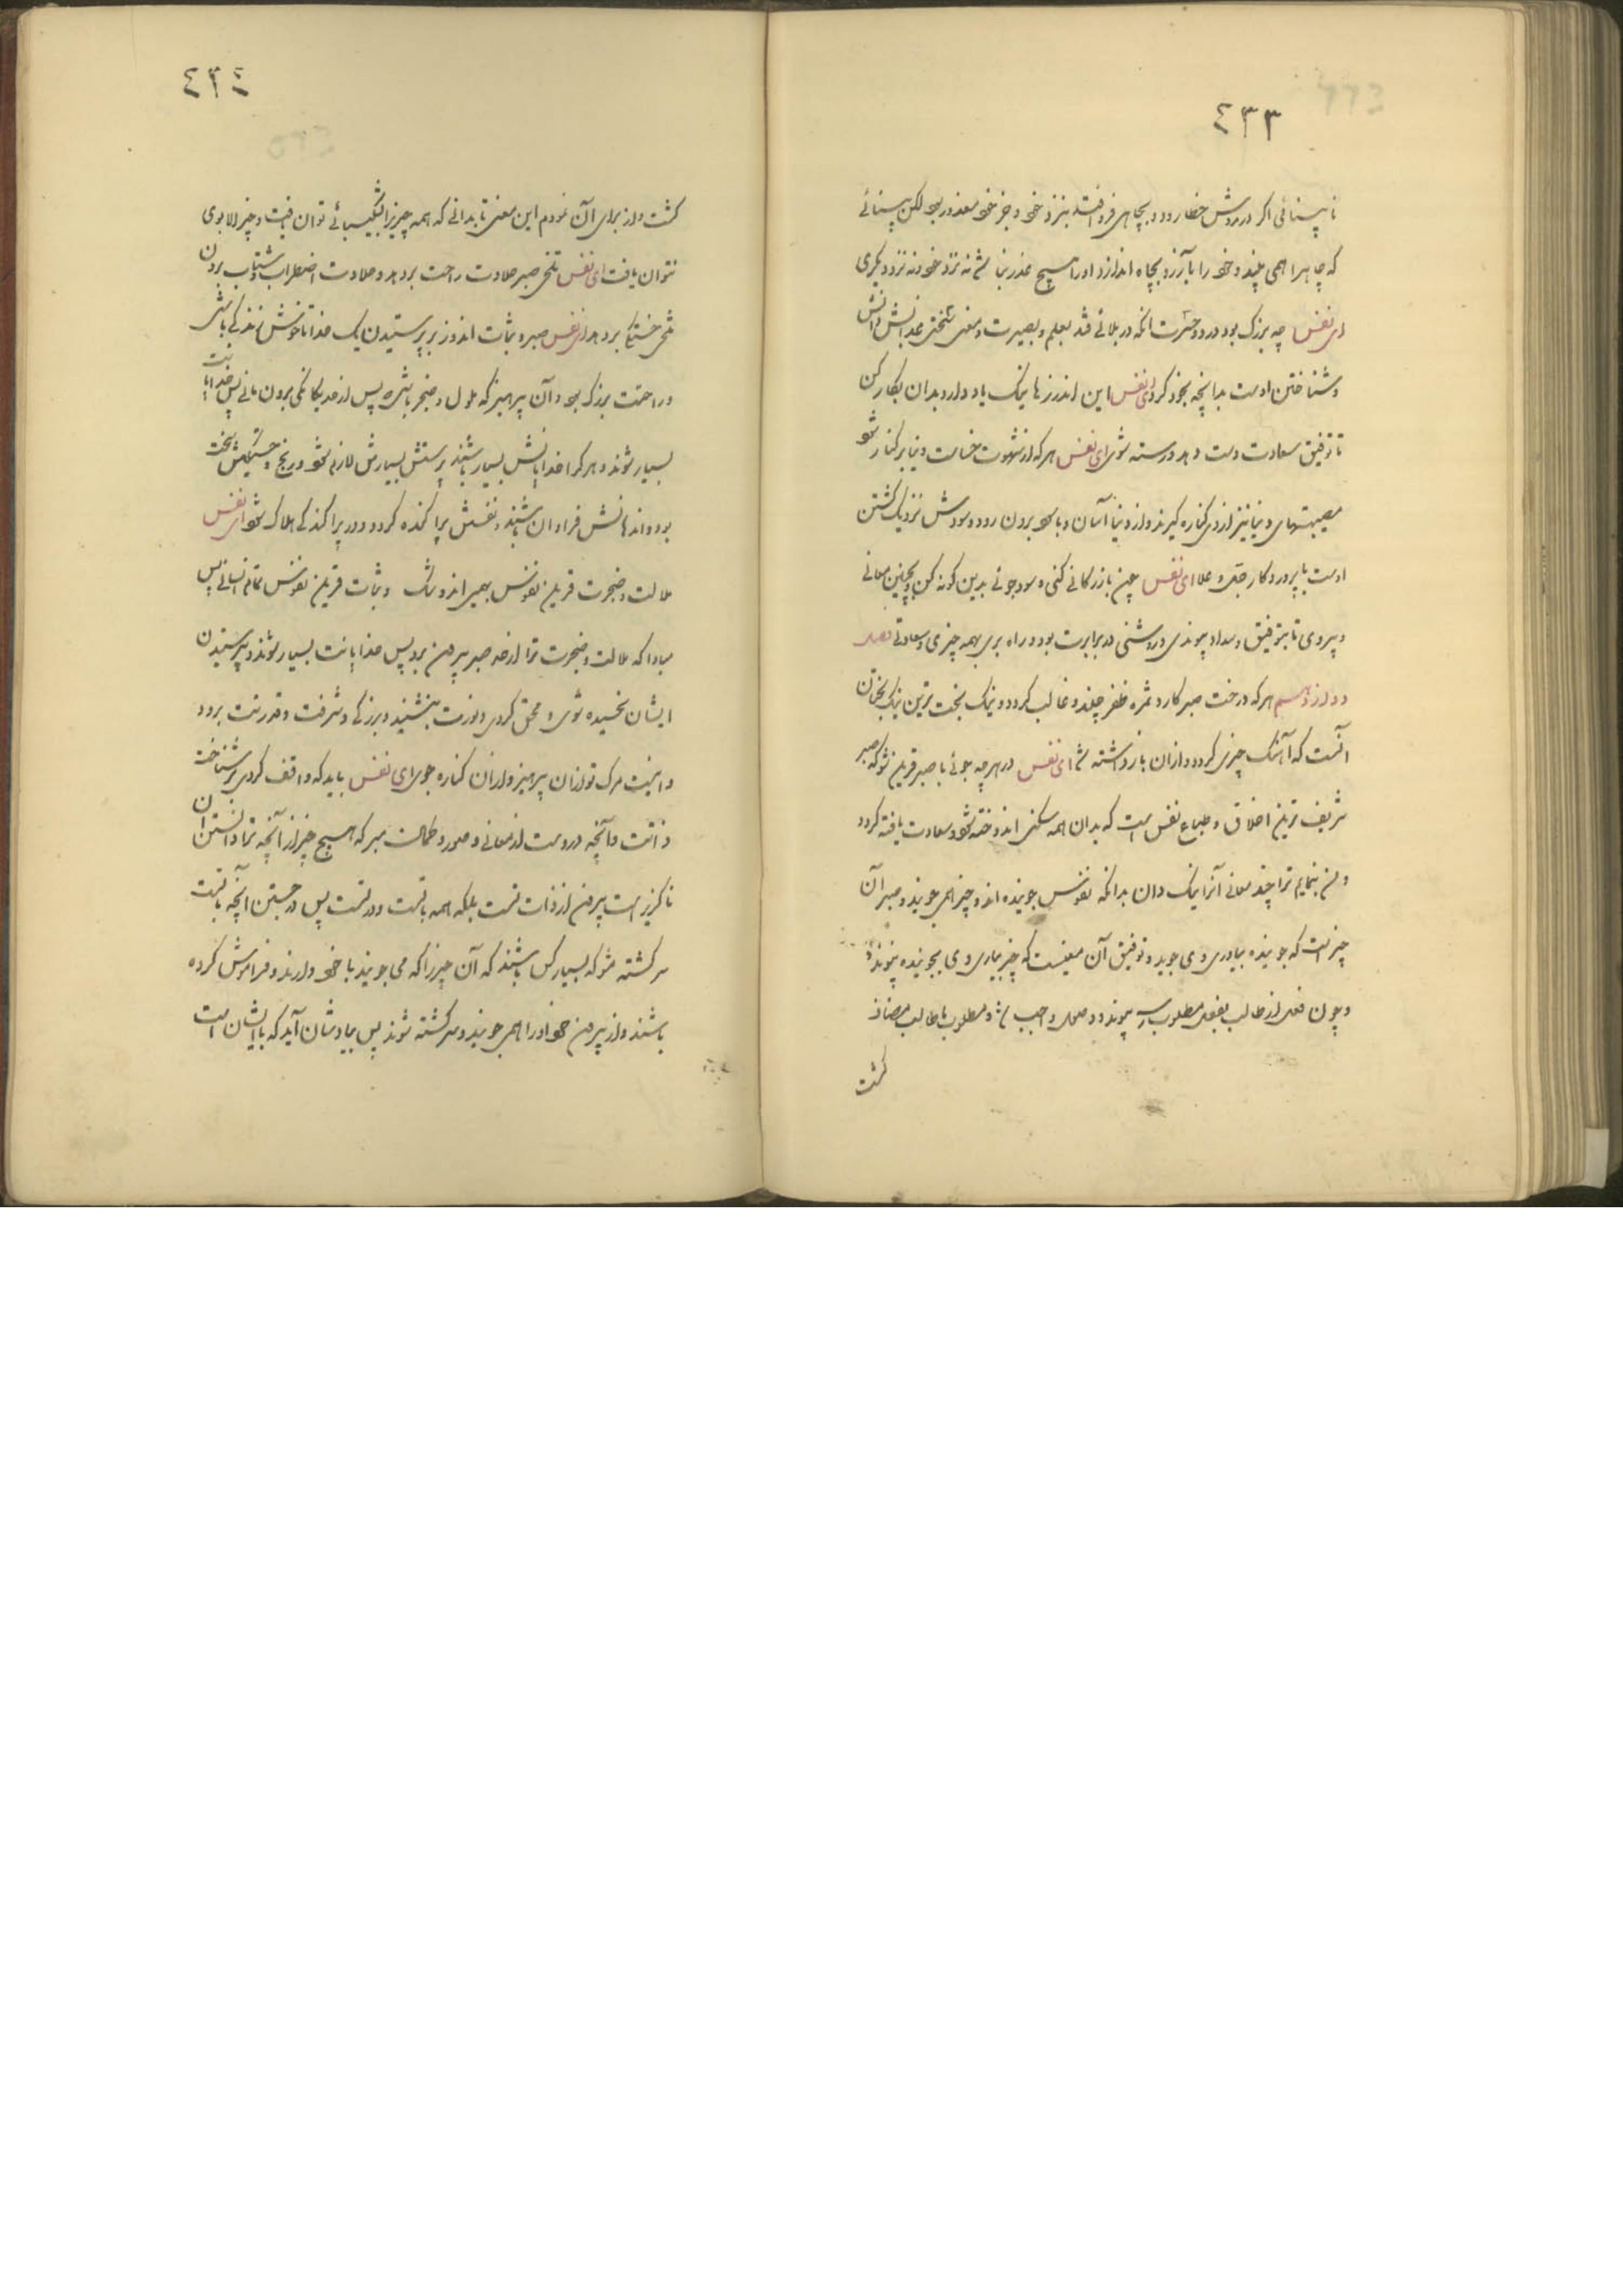 ٤٣٣
نابینائی اکر در روش خطا رود و بچاهی فرو افتد بنزد خود و جز خود معذور بود لکن بینائی
که چاه را همی بیند و خود را بآرزو بچاه اندازد او را هیچ عذر نباشد نه نزد خود و نه نزد دیکری
ای نفس چه بزرک بود درد و حسرت آنکه در بلائی فتد بعلم و بصیرت و معنی سختی عذابش دانش
و شناختن اوست بدانچه بخود کرد ای نفس این اندرزها نیک یاد دار و بدان بکار کن
تا توفیق سعادت دست دهد و رسته شوی ای نفس هر که از شهوت خساست دنیا بر کنار شود
مصیبتهای دنیا نیز از وی کناره کیرند و از دنیا آسان و با سود برون رود و سودش نزدیک کشتن
اوست با پروردکار جل و علا ای نفس چون بازرکانی کنی و سود جوئی بدین کونه کن و بچنین معانی
و پیروی تا بتوفیق و سداد پیوندی و روشنی در برابرت بود و راه بری بهمه چیزی و سعادتی فصل
دوازدهم هر که درخت صبر کارد ثمره ظفر چیند و غالب کردد و نیک بخت ترین نیک بختان
آنست که آهنک چیزی کردد و از آن باز داشته شد ای نفس در هر چه جوئی با صبر قرین شو که صبر
شریف ترین اخلاق و طباع نفس است که بدان همه سکنی اندوخته شود و سعادت یافته کردد
و من بنمایم ترا چند معانی آنرا نیک دان بدانکه نفوس جوینده اند و چیز همی جویند و صبر آن
چیزیست که جوینده بیاوری وی جوید و توفیق آن معنیست که چیز بیاری وی بجوینده پیوندد
و چون فعل از طالب بفعل مطلوب رسد پیوندد و وصل واجب شد و مطلوب با طالب مضاف
کشت
٤٣٤
کشت و از برای آن نمودم این معنی تا بدانی که همه چیز را بشکیبائی توان یافت و چیز را بی وی
نتوان یافت ای نفس تلخی صبر حلاوت راحت بر دهد و حلاوت اضطراب و شتاب برون
تلخی خستکی بر دهد ای نفس صبر و ثبات اندوز بر پرستیدن یک خدا تا خوش زندکی باشی
و راحتت بزرک بود و آن پرهیز که ملول و ضجر باشی پس از حد یکانکی برون مانی پس خدایانت
بسیار شوند و هر کرا خدایانش بسیار باشند پرستش بسیارش لازم شود و رنج و خستکیش سخت
بود و اندهانش فراوان باشند و نفسش پراکنده کردد و در پراکندکی هلاک شود ای نفس
ملالت و ضجرت قرین نفوس بهیمی اند و شک و ثبات قرین نفوس تمام انسانی پس
مبادا که ملالت و ضجرت ترا از حد صبر بیرون برد پس خدایانت بسیار شوند و بپرستیدن
ایشان خسیده شوی و محق کردی و نورت بنشیند و بزرکی و شرفت و قدرتت برود
و اینست مرک تو از آن پرهیز و از آن کناره جوی ای نفس باید که واقف کردی بر شناخت
ذاتت و آنچه دروست از معانی و صور و کمان مبر که هیچ چیز از آنچه ترا دانستن آن
ناکزیر است بیرون از ذات تست بلکه همه با تست و در تست پس در جستن آنچه با تست
سرکشته مشو که بسیار کس باشند که آن چیز را که می جویند با خود دارند و فراموش کرده
باشند و از بیرون خود او را همی جویند و سرکشته شوند پس بیادشان آید که با ایشان است